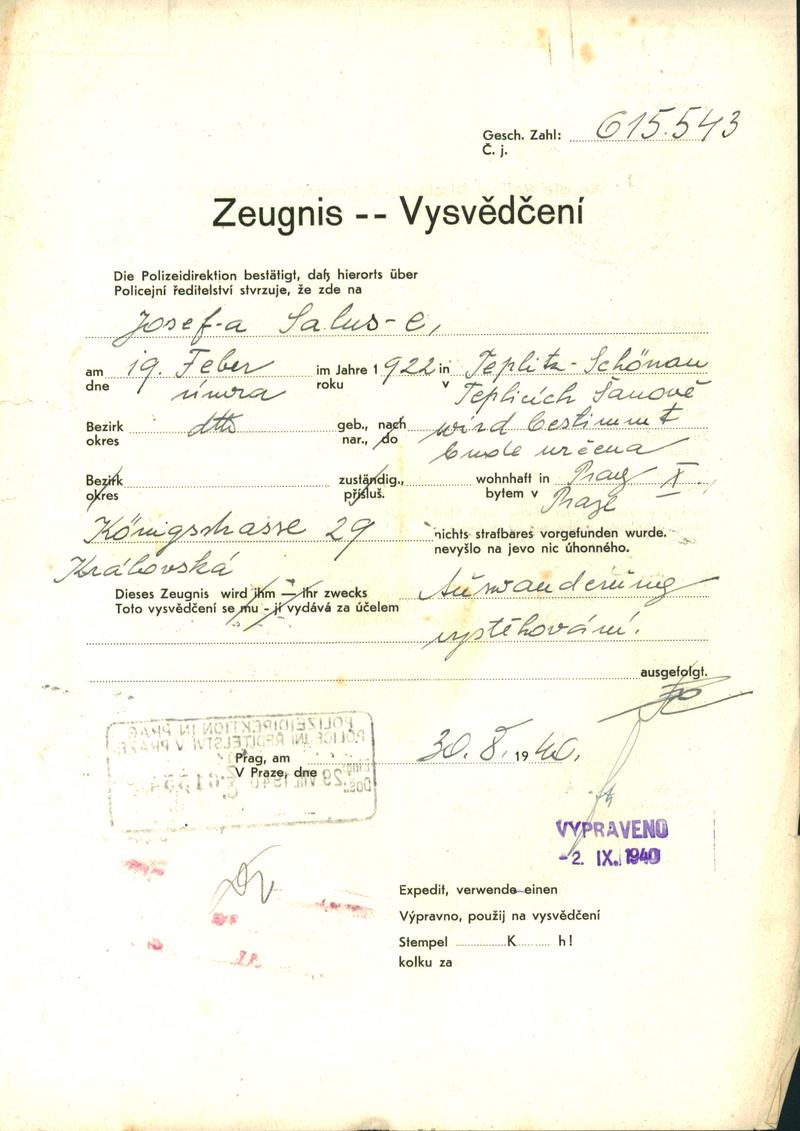 Gesch. Zahl: 615.543
Č. j.
Zeugnis -- Vysvědčení
Die Polizeidirektion bestätigt, daß hierorts über
Policejní ředitelství stvrzuje, že zde na
Josef-a Salus-e,
am 19. Feber im Jahre 1922 in Teplitz-Schönau
dne února roku v Teplicích Šanově
Bezirk dtto geb., nach wird bestimmt
okres nar., do bude určena
Bezirk zuständig., wohnhaft in Prag X.,
okres přísluš. bytem v Praze
Königstrasse 29 nichts strafbares vorgefunden wurde.
Královská nevyšlo na jevo nic úhonného.
Dieses Zeugnis wird ihm — ihr zwecks Auswanderung
Toto vysvědčení se mu - jí vydává za účelem
vystěhování.
ausgefolgt.
POLIZEIDIREKTION IN PRAG
POLICEJNÍ ŘEDITELSTVÍ V PRAZE
29. VIII. 1940
Prag, am 30. 8. 1940.
V Praze, dne
VYPRAVENO
-2. IX. 1940
Expedit, verwende einen
Výpravno, použij na vysvědčení
Stempel K h!
kolku za